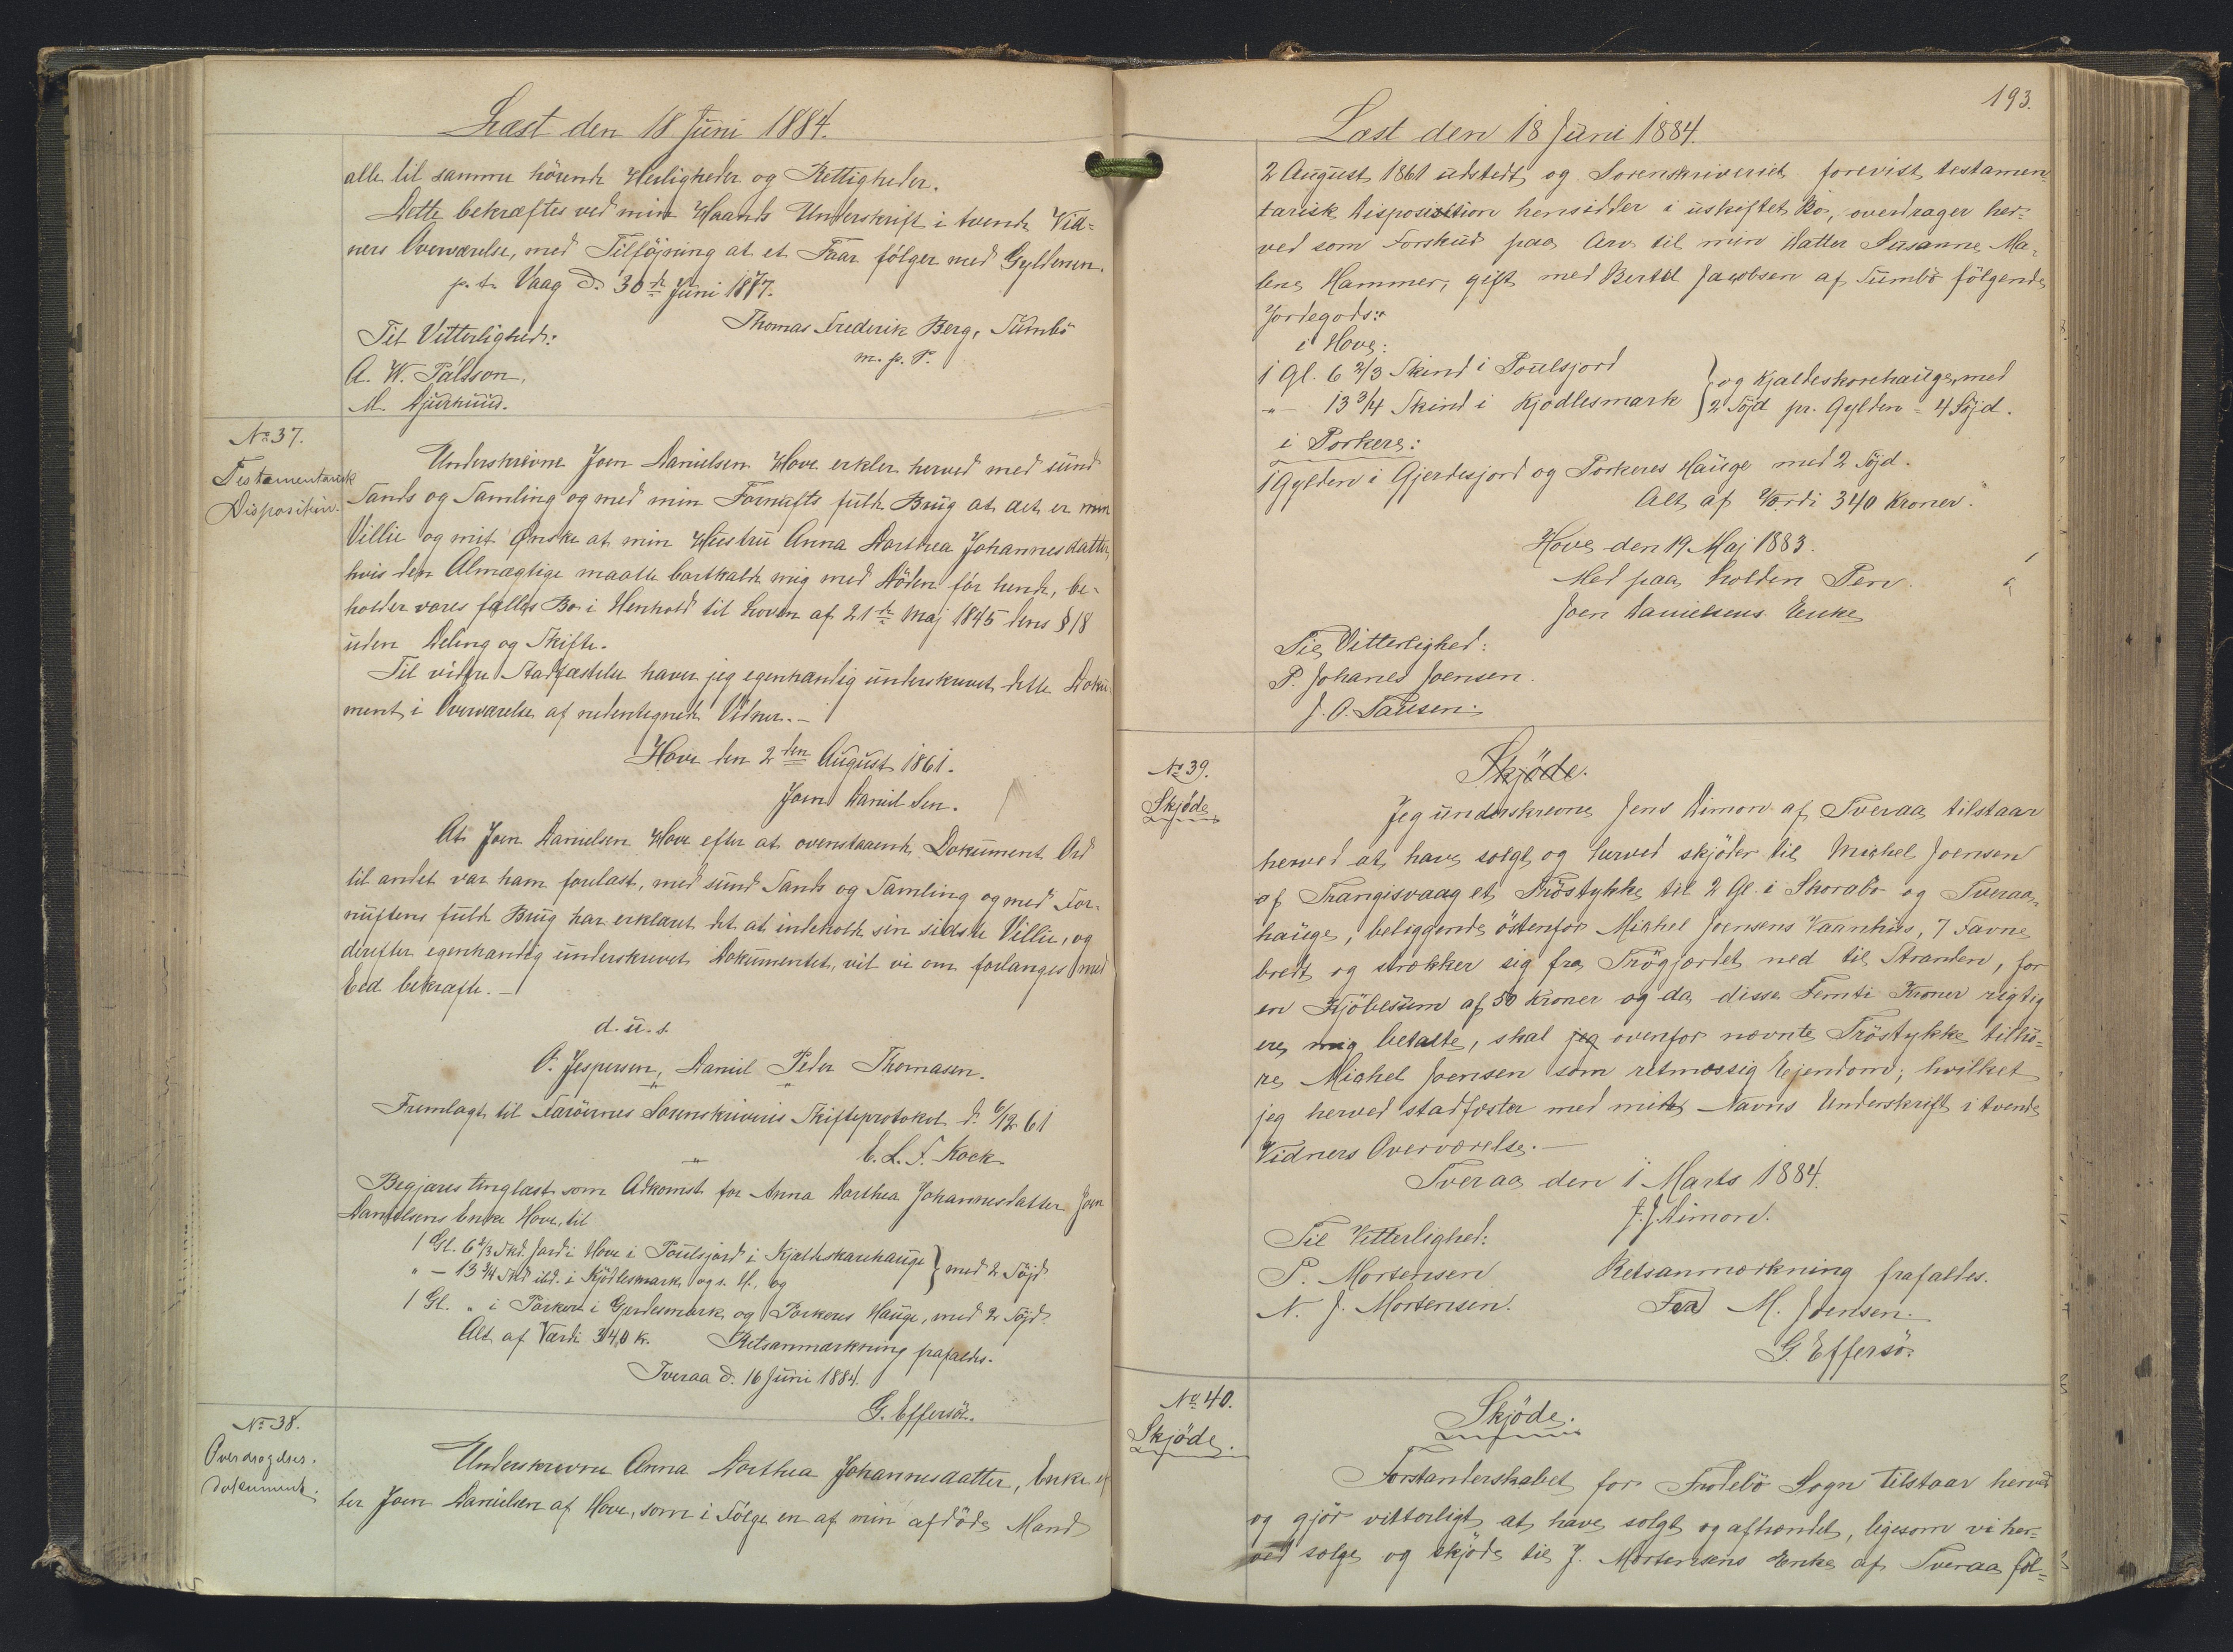 Læst den 18 Juni 1884.
alle til samme hörende Herligheder og Rettigheder.
Dette bekræftes ved min Haands Underskrift i tvende Vid-
ners Overværelse, med Tilföjning at et Faar fölger med Gyldenen.
p. t. Vaag d. 30te Juni 1877.
Thomas Frederik Berg, Sumbö
m. p. P.
Til Vitterlighed:
A. W. Pálsson.
M. Djurhuus.
No 37.
Testamentarisk
Disposition.
Underskrevne Joen Danielsen Hove erklær herved med sund
Sands og Samling og med min Fornufts fulde Brug at det er min
Villie og mit Ønske at min Hustru Anna Dorthea Johannesdatter,
hvis den Almægtige maatte bortkalde mig med Döden för hende, be-
holder vores fælles Bo i Henhold til Loven af 21de Maj 1845 dens § 18
uden Deling og Skifte.
Til videre Stadfæstelse haver jeg egenhændig underskrevet dette Doku-
ment i Overværelse af nedentegnede Vidner.-
Hove den 2den August 1861.
Joen Daniel Sen.
At Joen Danielsen Hove efter at ovenstaaende Dokument Ord
til andet var ham forelæst, med sund Sands og Samling og med For-
nuftens fulde Brug har erklæret det at indeholde sin sidste Villie, og
derefter egenhændig underskrevet Dokumentet, vil vi om forlanges med
Eed bekræfte.-
d. u. s.
O. Jespersen, Daniel Peder Thomasen.
Fremlagt til Færöernes Sorenskriveries Skifteprotokol d. 6/12 61
E. L. T. Kock.
Begjæres tinglæst som Adkomst for Anna Dorthea Johannesdatter Joen
Danielsens Enke Hove, til
1 Gl. 6 2/3 Skd. Jord i Hove i Poulsjord i Kjældeskorehauge } med 2 Söjd
" - 13 3/4 Skd itd. i Kjödlesmark og s. H., og
1 Gl. " i Porkere i Gjerdesmark og Porkeres Hauge, med 2 Söjd.
Alt af Værdi 340 Kr. Retsanmærkning frafaldes.
Tveraa d. 16 Juni 1884.
G. Effersöe.
No 38.
Overdragelses-
dokument.
Underskrevne Anna Dorthea Johannesdatter, Enke ef
ter Joen Danielsen af Hove, som i Fölge en af min afdöde Mand
193.
Læst den 18 Juni 1884.
2 August 1861 udstedt og Sorenskriveriet forevist testamen-
tarisk Disposistion hensidder i uskiftet Bo, overdrager her-
ved som Forskud paa Arv til min Datter Susanne Ma-
lene Hammer, gift med Bertel Jacobsen af Sumbö fölgende
Jordegods:
i Hove:
1 Gl. 6 2/3 Skind i Poulsjord
" - 13 3/4 Skind i Kjödlesmark
} og Kjældeskorehauge, med
2 Söjd pr. Gylden = 4 Söjd.
i Porkere:
1 Gylden i Gjerdesjord og Porkeres Hauge med 2 Söjd.
Alt af Værdi 340 Kroner.
Hove den 19 Maj 1883.
Med paa holden Pen.
Joen Danielsens Enke
Til Vitterlighed:
P. Johanes Joensen.
J. O. Pausen.
No 39.
Skjöde
Skjöde.
Jeg underskrevne Jens Dimon af Tveraa tilstaar
herved at have solgt og herved skjöder til Michel Joensen
af Trangisvaag et Tröstykke til 2 Gl. i Skorabö og Tveraa-
hauge, beliggende östenfor Michel Joensens Vaanhus, 7 Favne
bredt og strækker sig fra Trögjærdet ned til Stranden, for
en Kjöbesum af 50 Kroner og da disse Femti Kroner rigtig
ere mig betalte, skal jeg ovenfor nævnte Tröstykke tilhö-
re Michel Joensen som retmæssig Ejendom; hvilket
jeg herved stadfæster med mit Navns Underskrift i tvende
Vidners Overværelse.-
Tveraa den 1 Marts 1884.
J. J. Dimon.
Til Vitterlighed:
P. Mortensen
N. J. Mortensen.
Retsanmærkning frafaldes.
For M. Joensen.
G. Effersö.
No 40.
Skjöde.
Skjöde.
Forstanderskabet for Frodebö Sogn tilstaar herved
og gjör vitterligt at have solgt og afhændet, ligesom vi her-
ved sælge og skjöde til J. Mortensens Enke af Tveraa föl-